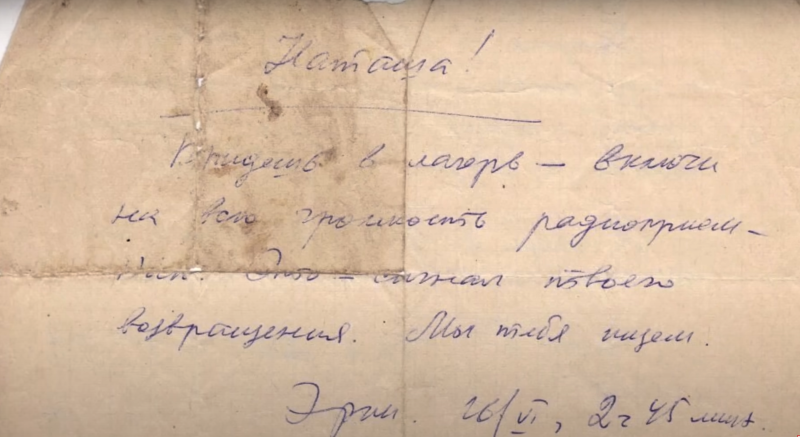 Наташа!
Придешь в лагерь — включи
на всю громкость радиоприем-
ник. Это — сигнал твоего
возвращения. Мы тебя ищем.
26/VI, 2ч 45 мин.